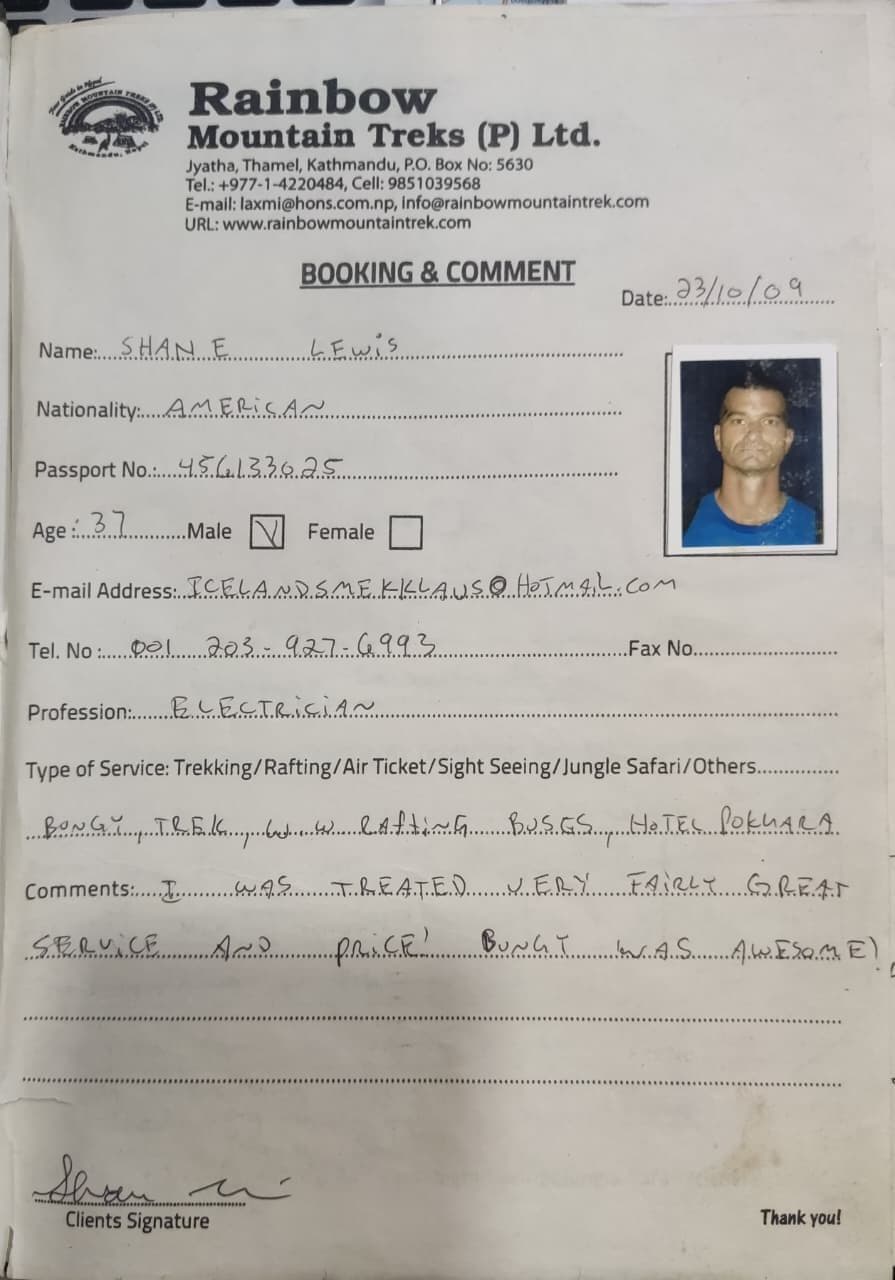 Your Guide in Nepal
RAINBOW MOUNTAIN TREKS (P) LTD.
Kathmandu, Nepal
Rainbow
Mountain Treks (P) Ltd.
Jyatha, Thamel, Kathmandu, P.O. Box No: 5630
Tel.: +977-1-4220484, Cell: 9851039568
E-mail: laxmi@hons.com.np, info@rainbowmountaintrek.com
URL: www.rainbowmountaintrek.com
BOOKING & COMMENT
Date: 23/10/09
Name: SHANE LEWIS
Nationality: AMERICAN
Passport No.: 456133625
Age: 37 Male Female
E-mail Address: ICELANDSMEKKLAUS@HOTMAIL.COM
Tel. No: 001 203-927-6993 Fax No.
Profession: ELECTRICIAN
Type of Service: Trekking/Rafting/Air Ticket/Sight Seeing/Jungle Safari/Others
BUNGY, TREK, W.W RAFTING BUSES, HOTEL POKHARA
Comments: I WAS TREATED VERY FAIRLY GREAT
SERVICE AND PRICE! BUNGY WAS AWESOME!
Clients Signature
Thank you!